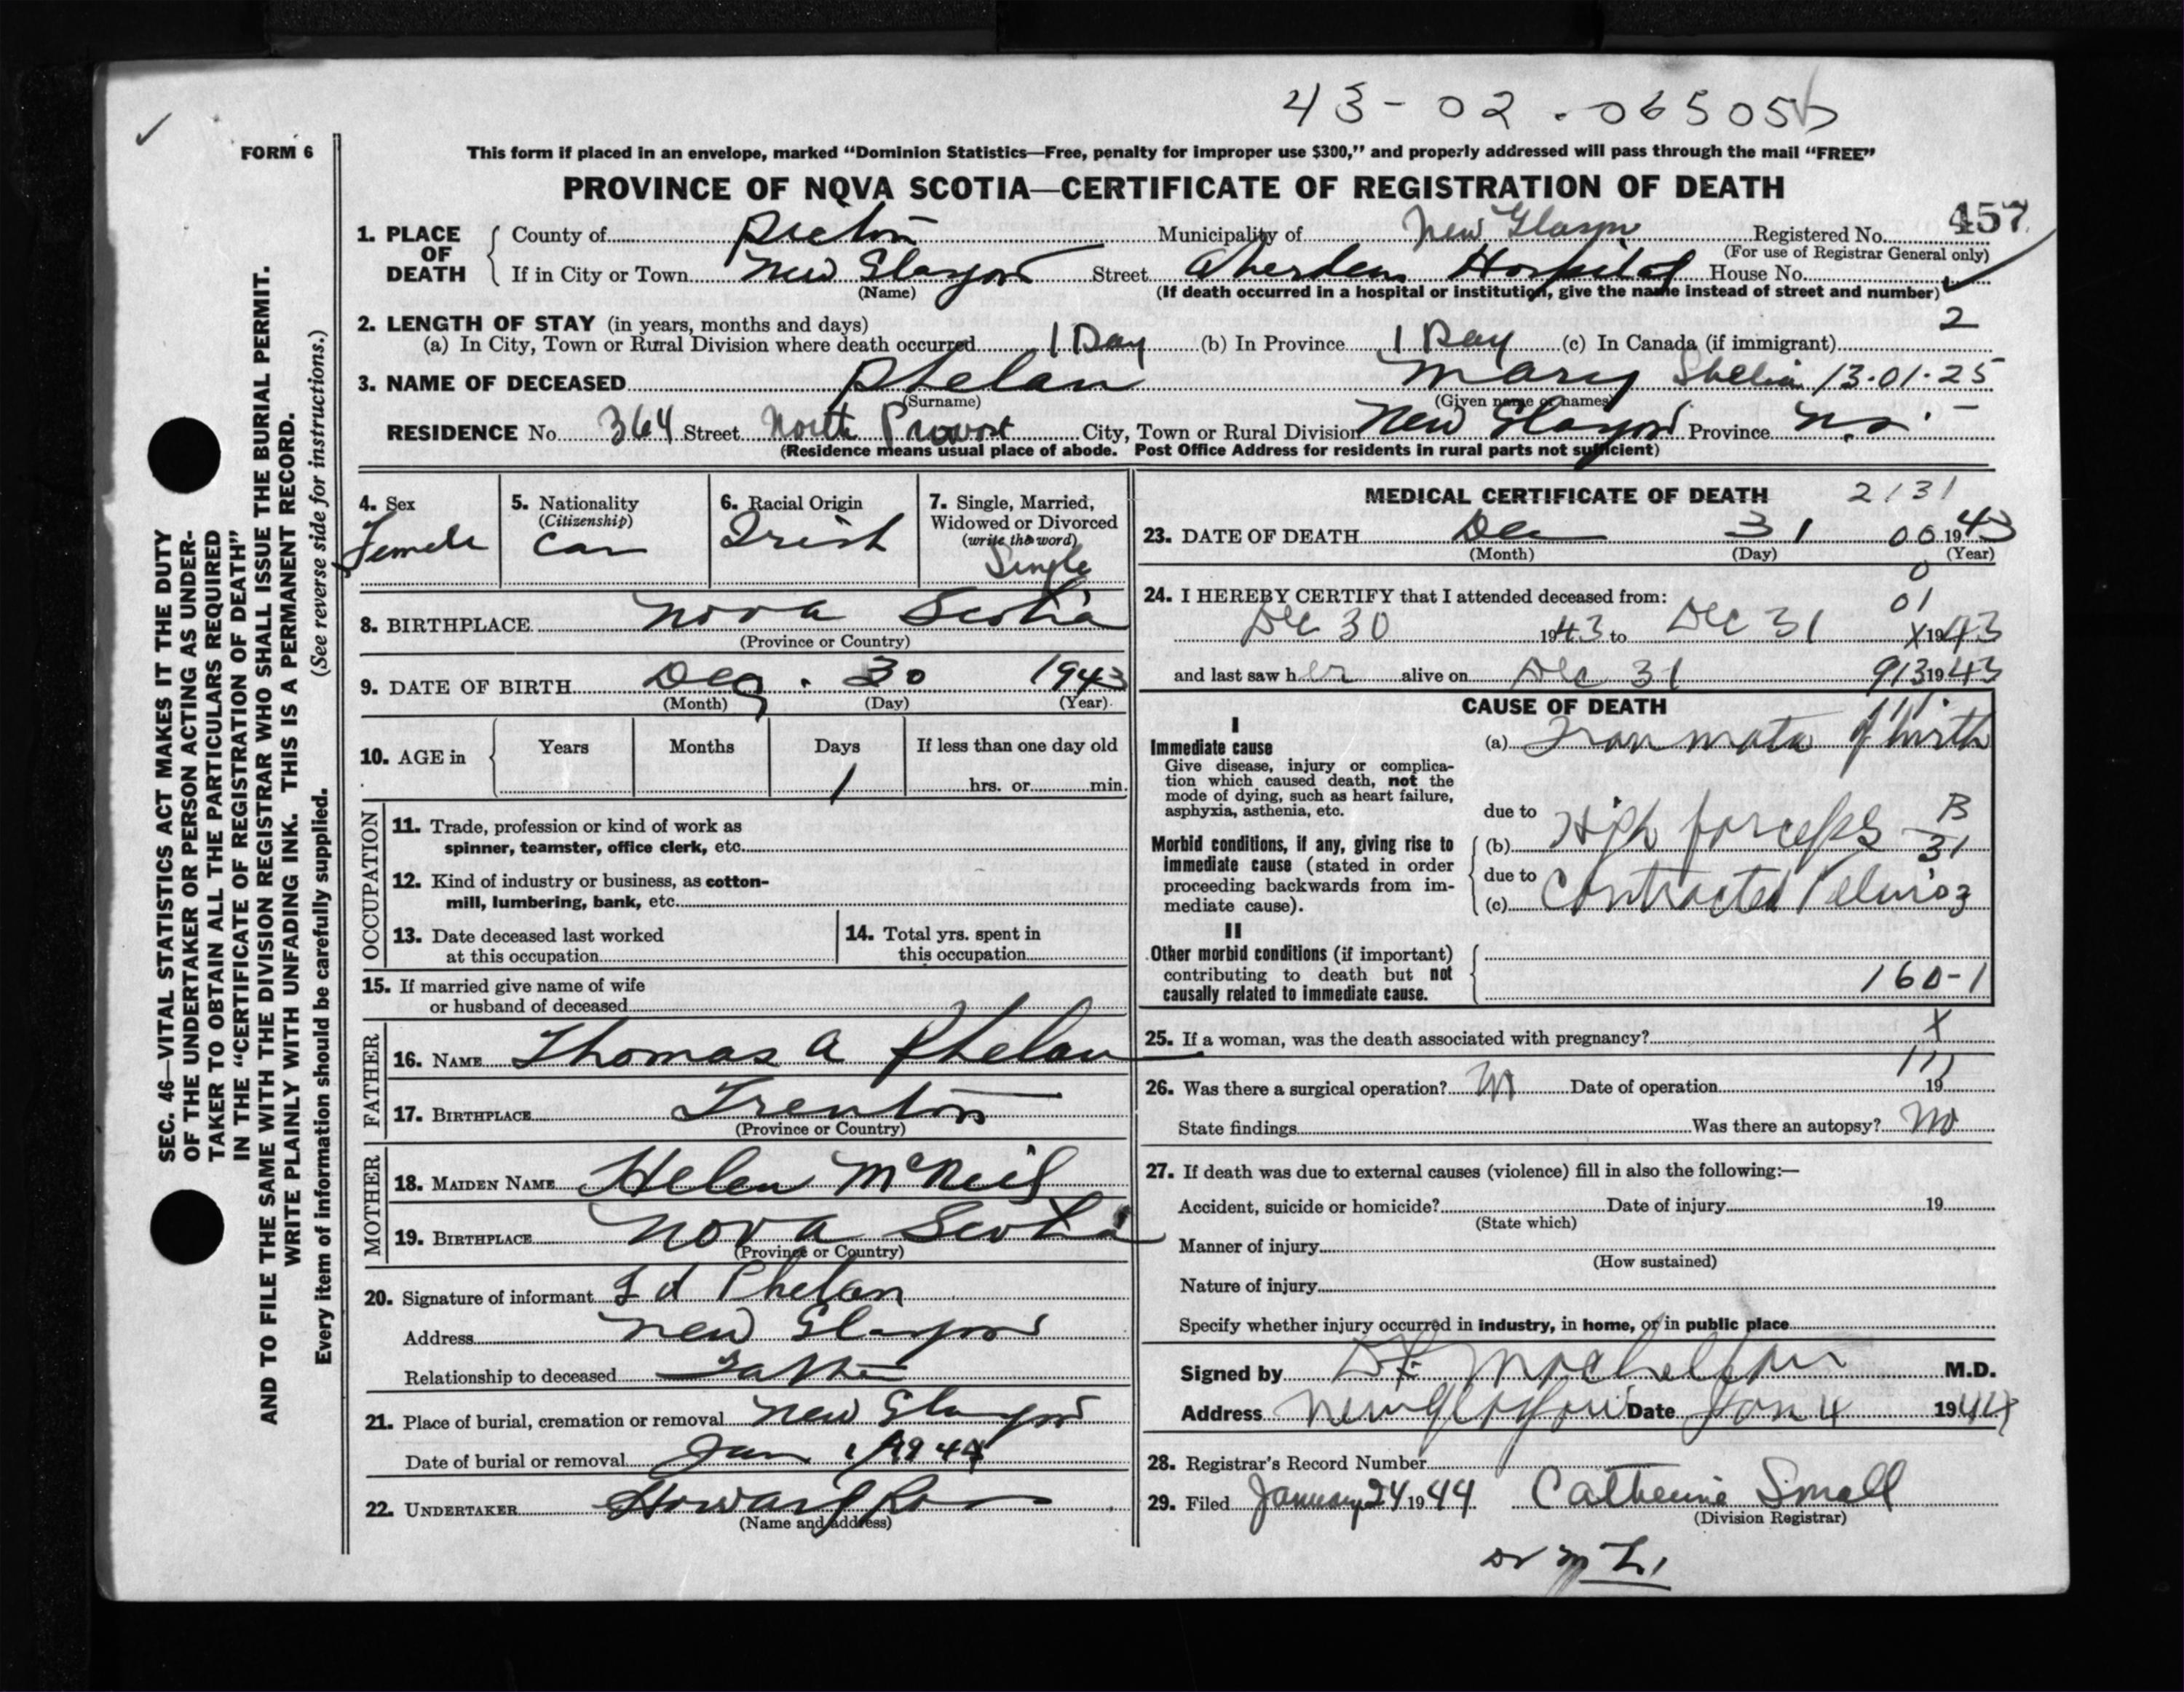 43-02.06505
FORM 6
This form if placed in an envelope, marked “Dominion Statistics—Free, penalty for improper use $300,” and properly addressed will pass through the mail “FREE”
PROVINCE OF NOVA SCOTIA—CERTIFICATE OF REGISTRATION OF DEATH
457
1. PLACE OF DEATH
County of Pictou Municipality of New Glasgow Registered No.
(For use of Registrar General only)
If in City or Town New Glasgow Street Aberdeen Hospital House No.
(Name) (If death occurred in a hospital or institution, give the name instead of street and number)
2. LENGTH OF STAY (in years, months and days)
2
(a) In City, Town or Rural Division where death occurred 1 Day (b) In Province 1 Day (c) In Canada (if immigrant)
3. NAME OF DECEASED Phelan Mary 13-01-25
(Surname) (Given name or names)
RESIDENCE No. 364 Street North Provost City, Town or Rural Division New Glasgow Province N.S.
(Residence means usual place of abode. Post Office Address for residents in rural parts not sufficient)
4. Sex
Female
5. Nationality
(Citizenship)
Can
6. Racial Origin
Irish
7. Single, Married,
Widowed or Divorced
(write the word)
Single
8. BIRTHPLACE Nova Scotia
(Province or Country)
9. DATE OF BIRTH Dec. 30 1943
(Month) (Day) (Year)
10. AGE in
Years Months Days If less than one day old
1 hrs. or min.
OCCUPATION
11. Trade, profession or kind of work as
spinner, teamster, office clerk, etc.
12. Kind of industry or business, as cotton-
mill, lumbering, bank, etc.
13. Date deceased last worked
at this occupation
14. Total yrs. spent in
this occupation
15. If married give name of wife
or husband of deceased
FATHER
16. NAME Thomas A Phelan
17. BIRTHPLACE Trenton
(Province or Country)
MOTHER
18. MAIDEN NAME Helen McNeil
19. BIRTHPLACE Nova Scotia
(Province or Country)
20. Signature of informant Phelan
Address New Glasgow
Relationship to deceased Father
21. Place of burial, cremation or removal New Glasgow
Date of burial or removal Jan 1 1944
22. UNDERTAKER Howard
(Name and address)
MEDICAL CERTIFICATE OF DEATH 2131
23. DATE OF DEATH Dec 31 00 1943
(Month) (Day) (Year)
0
24. I HEREBY CERTIFY that I attended deceased from: 01
Dec 30 1943 to Dec 31 X 1943
and last saw her alive on Dec 31 913 1943
CAUSE OF DEATH
111
I
Immediate cause
Give disease, injury or complica-
tion which caused death, not the
mode of dying, such as heart failure,
asphyxia, asthenia, etc.
(a) Traumata of birth
due to
B
Morbid conditions, if any, giving rise to
immediate cause (stated in order
proceeding backwards from im-
mediate cause).
(b) High forceps 31
due to
(c) Contracted Pelvis 03
II
Other morbid conditions (if important)
contributing to death but not
causally related to immediate cause.
160-1
25. If a woman, was the death associated with pregnancy? X
111
26. Was there a surgical operation? No Date of operation 19
State findings Was there an autopsy? No
27. If death was due to external causes (violence) fill in also the following:—
Accident, suicide or homicide? Date of injury 19
(State which)
Manner of injury
(How sustained)
Nature of injury
Specify whether injury occurred in industry, in home, or in public place
Signed by M.D.
Address New Glasgow Date Jan 4 1944
28. Registrar's Record Number
29. Filed January 24 1944 Catherine Small
(Division Registrar)
SEC. 46—VITAL STATISTICS ACT MAKES IT THE DUTY
OF THE UNDERTAKER OR PERSON ACTING AS UNDER-
TAKER TO OBTAIN ALL THE PARTICULARS REQUIRED
IN THE “CERTIFICATE OF REGISTRATION OF DEATH”
AND TO FILE THE SAME WITH THE DIVISION REGISTRAR WHO SHALL ISSUE THE BURIAL PERMIT.
WRITE PLAINLY WITH UNFADING INK. THIS IS A PERMANENT RECORD.
Every item of information should be carefully supplied. (See reverse side for instructions.)